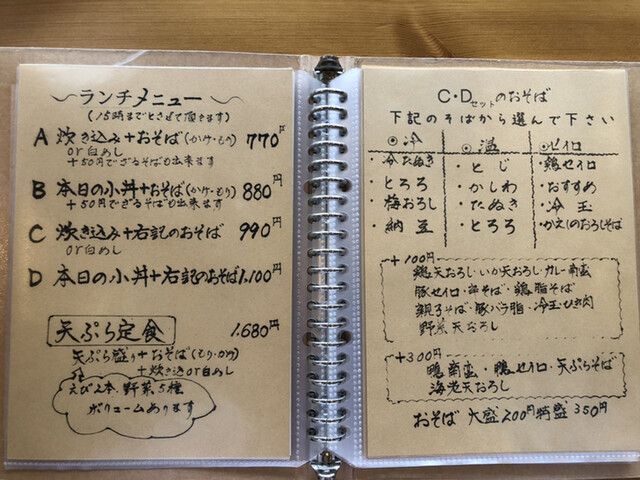 ～ランチメニュー～
(15時までとさせて頂きます)
A 炊き込み+おそば(かけ・もり) 770円
or白めし
+50円でざるそばも出来ます
B 本日の小丼+おそば(かけ・もり) 880円
+50円でざるそばも出来ます
C 炊き込み+右記のおそば 990円
or白めし
D 本日の小丼+右記のおそば 1,100円
天ぷら定食 1,680円
天ぷら盛り+おそば(もり・かけ)
+炊き込or白めし
えび2本、野菜5種
ボリュームあります
C・Dセットのおそば
下記のそばから選んで下さい
◎冷 ◎温 ◎セイロ
・冷たぬき ・とじ ・鶏セイロ
・とろろ ・かしわ ・おすすめ
・梅おろし ・たぬき ・冷玉
・納豆 ・とろろ ・かえしのおろしそば
+100円
鶏天おろし・いか天おろし・カレー南蛮
豚セイロ・辛そば・鶏脂そば
親子そば・豚バラ脂・冷玉ひき肉
野菜天おろし
+300円
鴨南蛮・鴨セイロ・天ぷらそば
海老天おろし
おそば 大盛200円 特盛350円